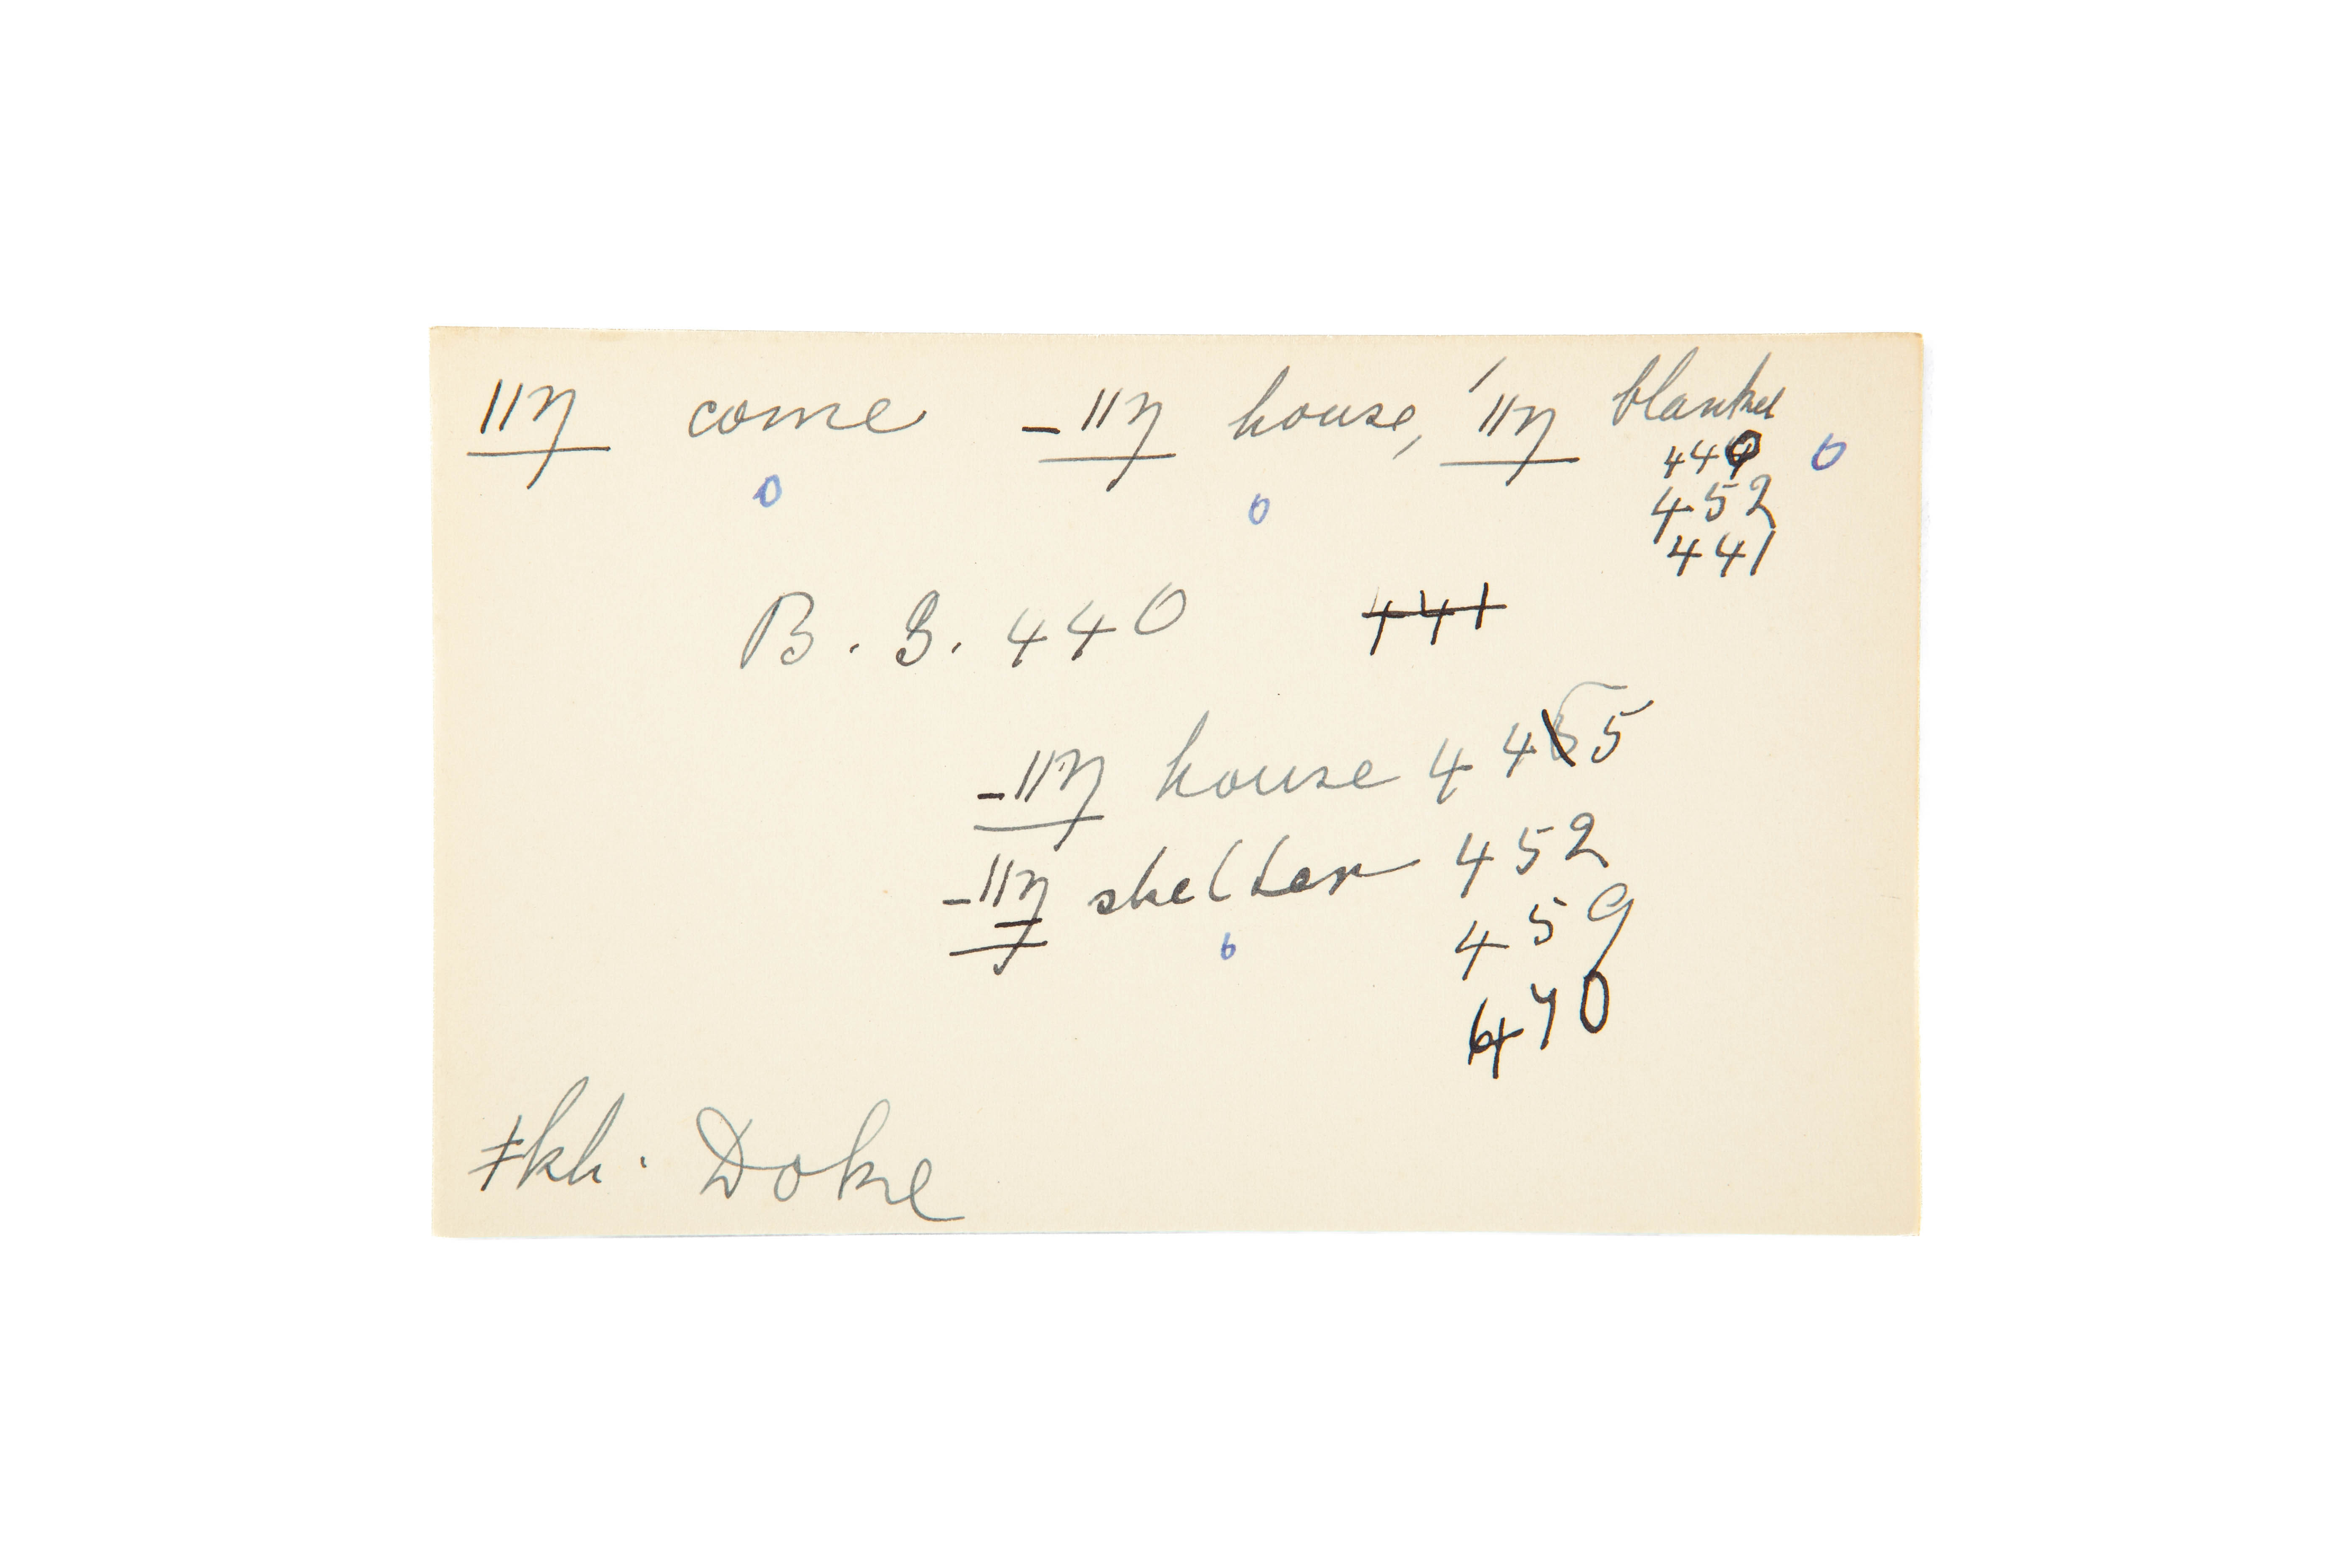 ǁŋ come –ǁŋ house, ˊǁŋ blanket
440 0
0 0 452
441
B. S. 440 441
–ǁŋ house 445
–ǁŋ shelter 452
6 459
470
ǂkh. Doke